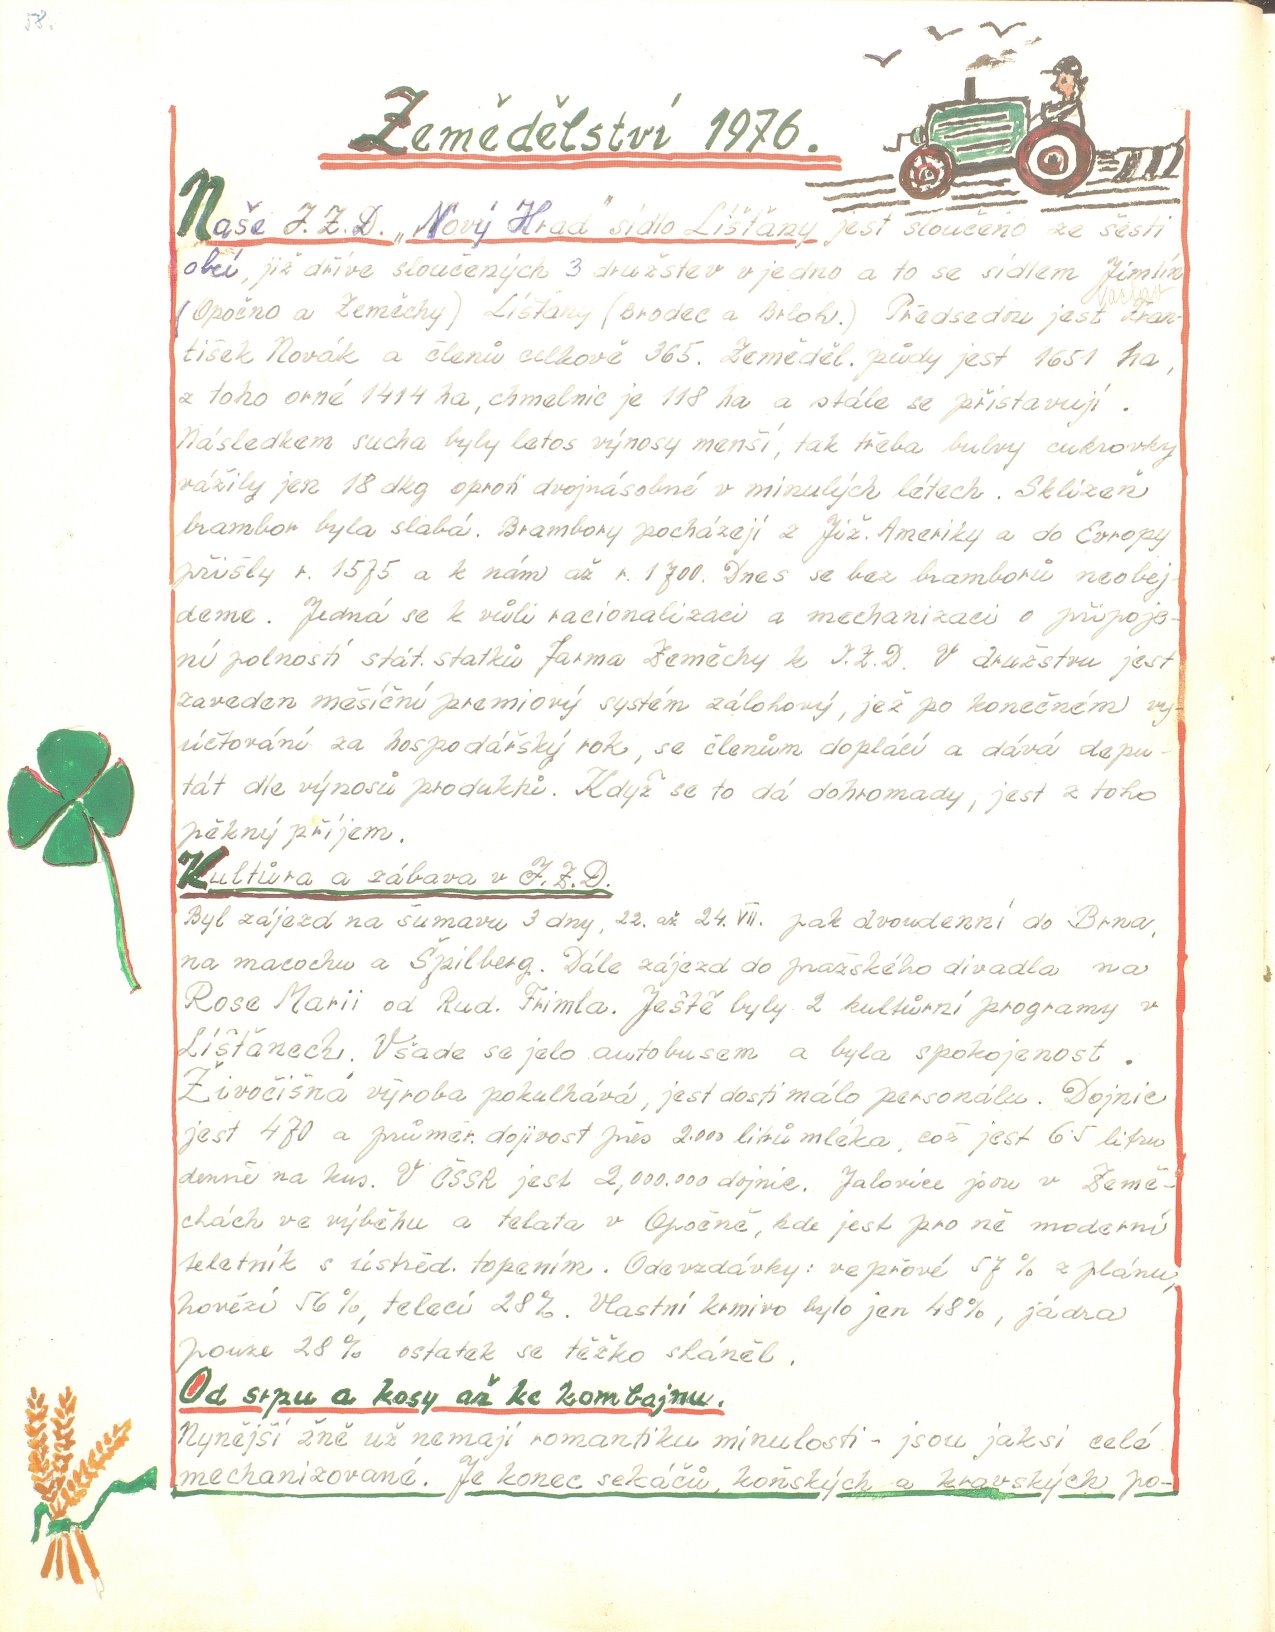 58.
Zemědělství 1976.
Naše J.Z.D. „Nový Hrad" sídlo Líšťany jest sloučeno ze šesti
obcí, již dříve sloučených 3 družstev v jedno a to se sídlem Jimlín
(Opočno a Zeměchy) Líšťany (Brodec a Brloh.) Předsedou jest Fran-
Václav
tišek Novák a členů celkově 365. Zeměděl. půdy jest 1651 ha,
z toho orné 1414 ha, chmelnic je 118 ha a stále se přistavují.
Následkem sucha byly letos výnosy menší, tak třeba bulvy cukrovky
vážily jen 18 dkg oproti dvojnásobné v minulých létech. Sklizeň
brambor byla slabá. Brambory pocházejí z Již. Ameriky a do Evropy
přišly r. 1575 a k nám až r. 1700. Dnes se bez bramborů neobej-
deme. Jedná se k vůli racionalizaci a mechanizaci o připoje-
ní polností stát. statků Farma Zeměchy k J.Z.D. V družstvu jest
zaveden měsíční premiový systém zálohový, jež po konečném vy-
účtování za hospodářský rok, se členům doplácí a dává depu-
tát dle výnosů produktů. Když se to dá dohromady, jest z toho
pěkný příjem.
Kultůra a zábava v J.Z.D.
Byl zájezd na šumavu 3 dny, 22. až 24. VII. pak dvoudenní do Brna,
na macochu a Špilberg. Dále zájezd do pražského divadla na
Rose Marii od Rud. Frimla. Ještě byly 2 kultůrní programy v
Líšťanech. Všade se jelo autobusem a byla spokojenost.
Živočišná výroba pokulhává, jest dosti málo personálu. Dojnic
jest 470 a průměr. dojivost přes 2.000 litrů mléka, což jest 6·5 litru
denně na kus. V ČSSR jest 2,000.000 dojnic. Jalovice jsou v Země-
chách ve výběhu a telata v Opočně, kde jest pro ně moderní
teletník s ústřed. topením. Odevzdávky: vepřové 57% z plánu,
hovězí 56%, telecí 28%. Vlastní krmivo bylo jen 48%, jádra
pouze 28% ostatek se těžko sháněl.
Od srpu a kosy až ke kombajnu.
Nynější žně už nemají romantiku minulosti - jsou jaksi celé
mechanizované. Je konec sekáčů, koňských a kravských po-